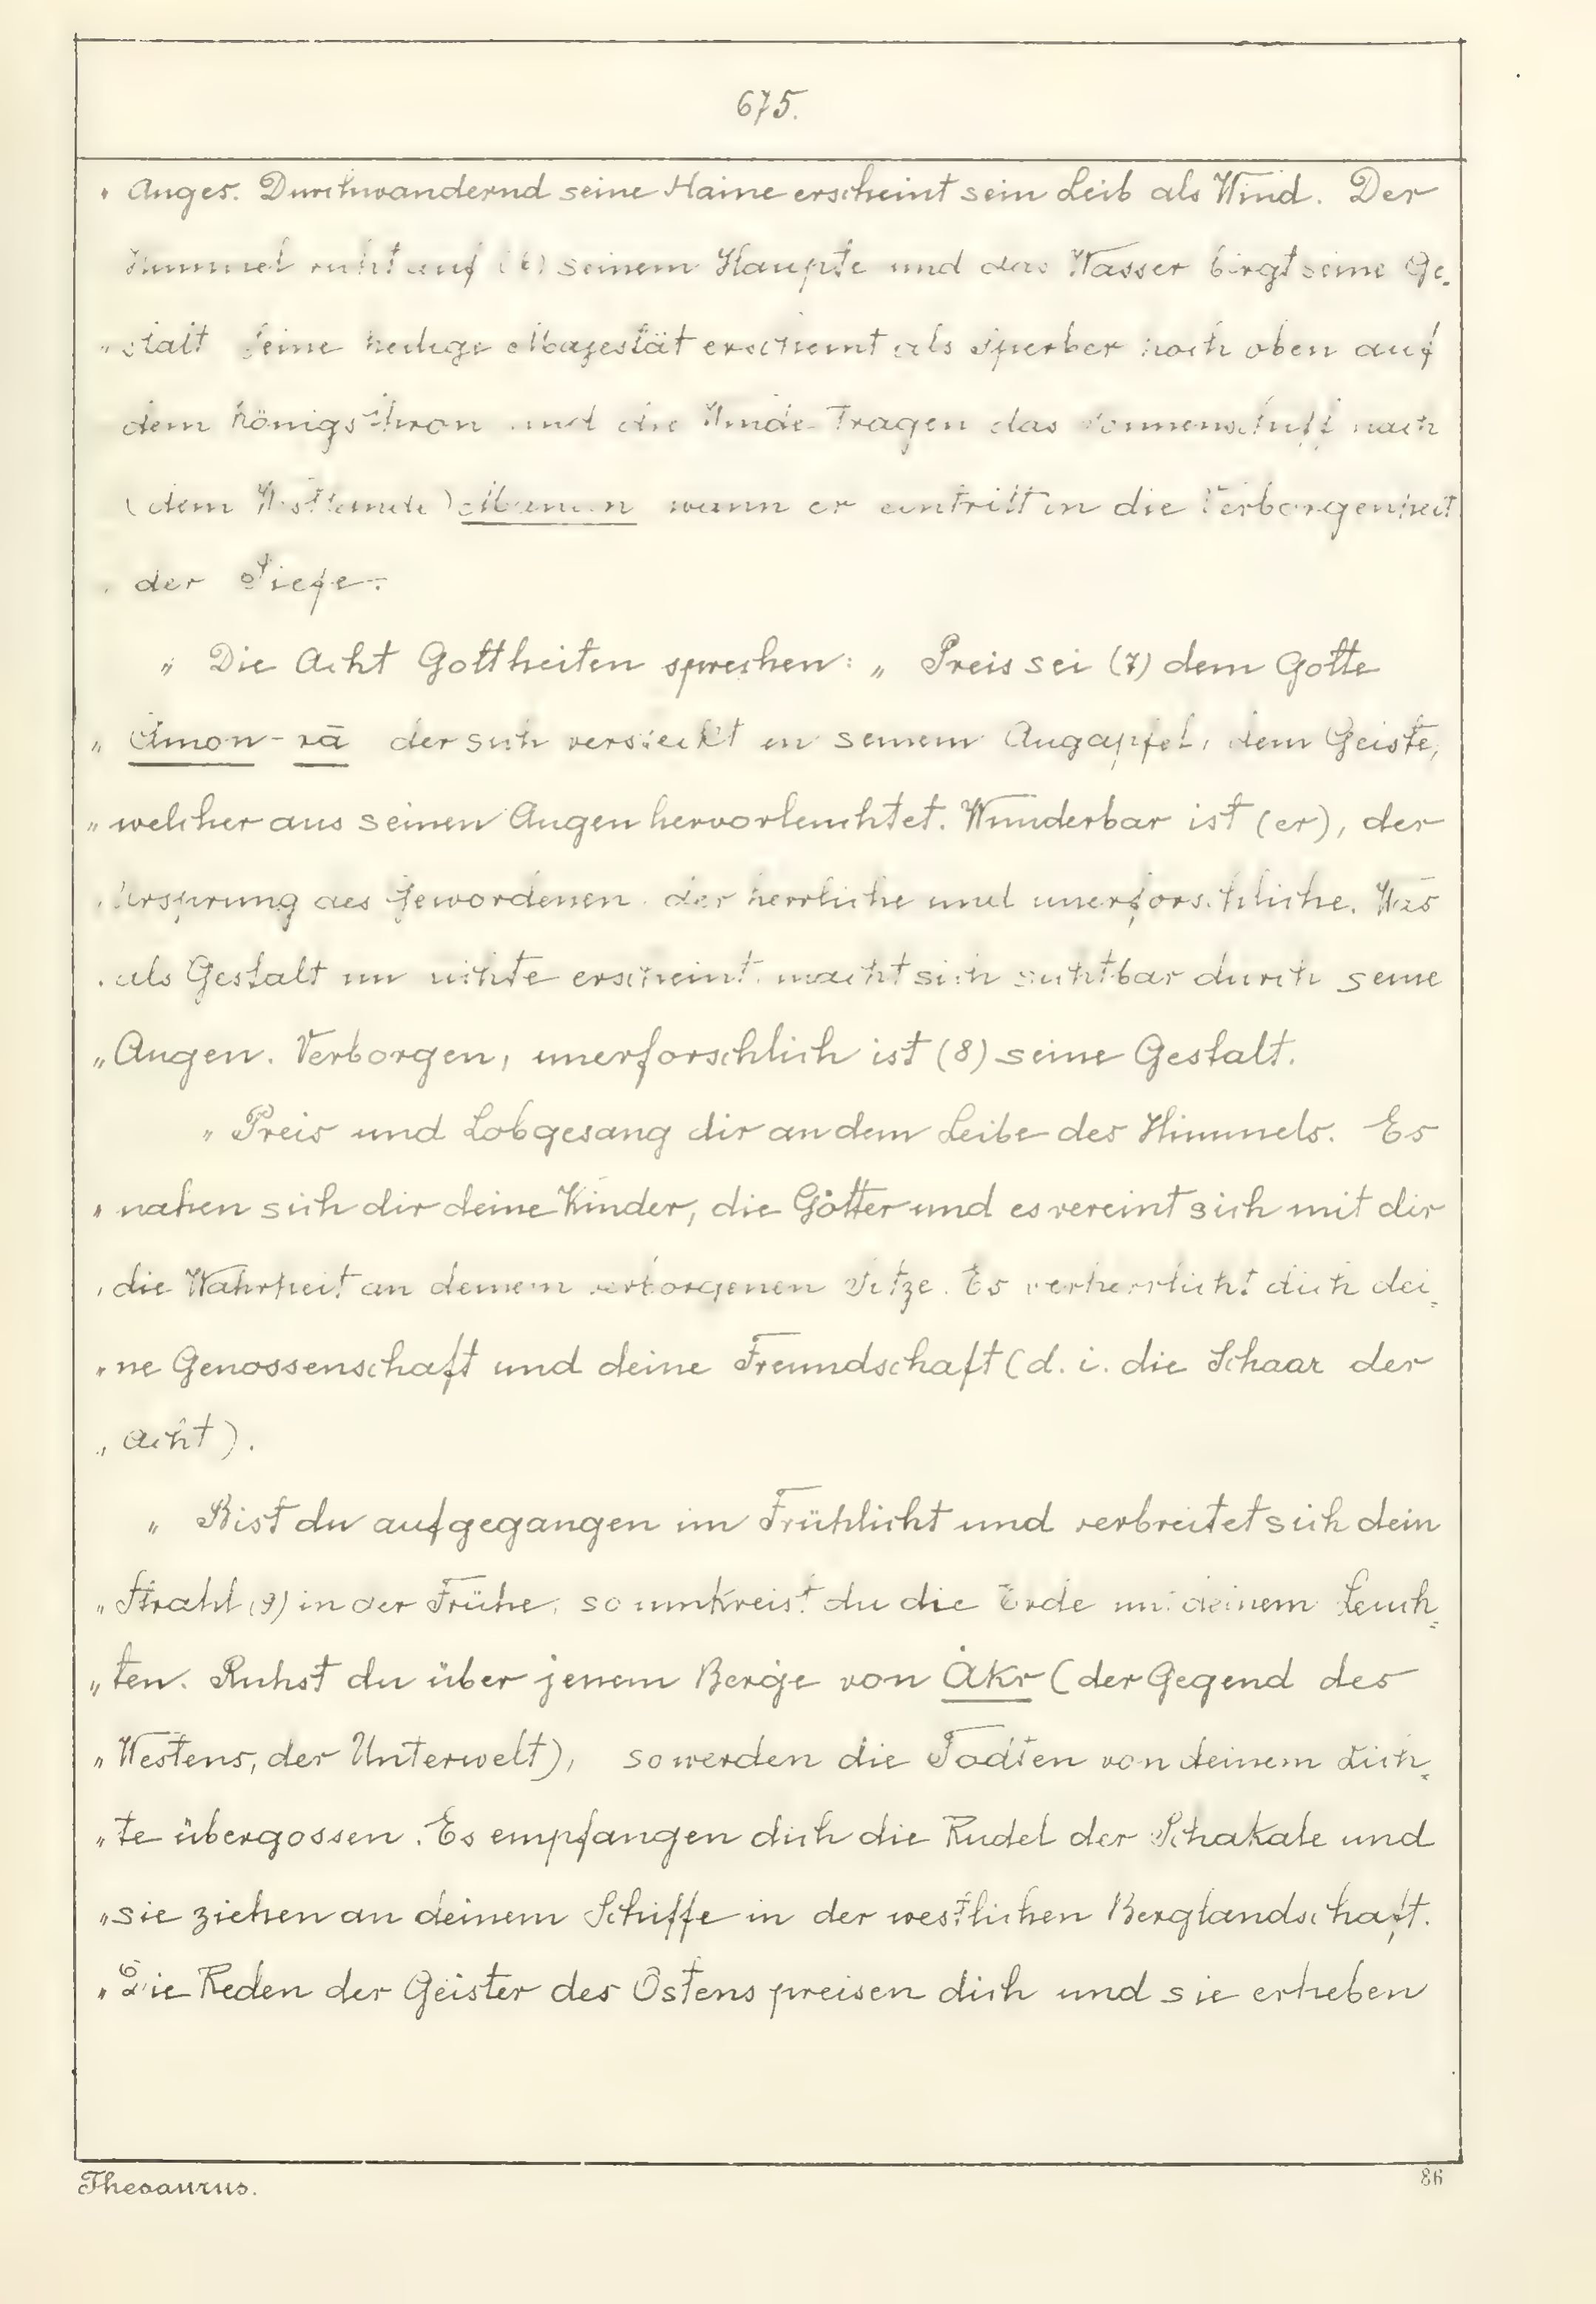 675.
„ Auges. Durchwandernd seine Haine erscheint sein Leib als Wind. Der
Himmel ruht auf (6) seinem Haupte und das Wasser birgt seine Ge-
„ stalt Seine heilige Majestät erscheint als Sperber hoch oben auf
dem Königsthron und die Winde tragen das Sonnenschiff nach
(dem Westlande) wann er eintritt in die Verborgenheit
„ der Tiefe.
„ Die Acht Gottheiten sprechen: „ Preis sei (7) dem Gotte
„ Amon-rā der sich versteckt in seinem Augapfel, dem Geiste,
„ welcher aus seinen Augen hervorleuchtet. Wunderbar ist (er), der
„ Ursprung des Gewordenen, der herrliche und unerforschliche. Was
„ als Gestalt im Lichte erscheint, macht sich sichtbar durch seine
„ Augen. Verborgen, unerforschlich ist (8) seine Gestalt.
„ Preis und Lobgesang dir an dem Leibe des Himmels. Es
„ nahen sich dir deine Kinder, die Götter und es vereint sich mit dir
„ die Wahrheit an deinem verborgenen Sitze. Es verherrlicht dich dei-
„ ne Genossenschaft und deine Freundschaft (d. i. die Schaar der
„ Acht).
„ Bist du aufgegangen im Frühlicht und verbreitet sich dein
„ Strahl (9) in der Frühe, so umkreist du die Erde mit deinem Leuch-
„ ten. Ruhst du über jenem Berge von Ȧkr (der Gegend des
„ Westens, der Unterwelt), so werden die Todten von deinem Lich-
„ te übergossen. Es empfangen dich die Rudel der Schakale und
„ sie ziehen an deinem Schiffe in der westlichen Berglandschaft.
„ Die Reden der Geister des Ostens preisen dich und sie erheben
Thesaurus.
86